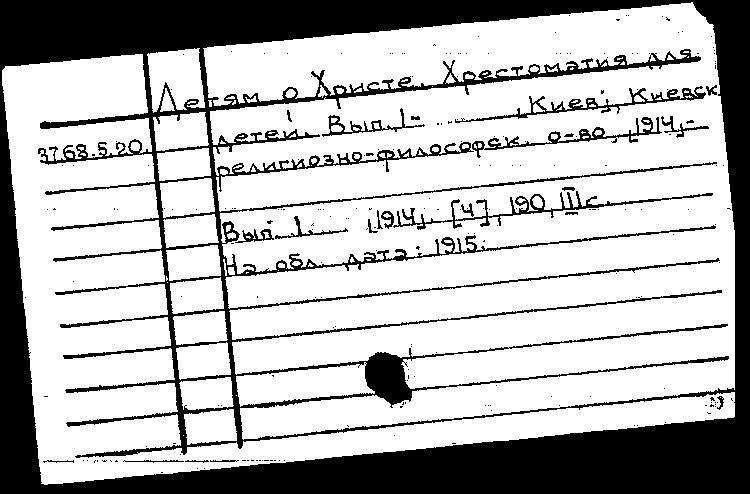 Детям о Христе. Хрестоматия для
37.68.5.20. детей. Вып. 1- ... [Киев], Киевск.
религиозно-философск. о-во, [1914]-
Вып. 1. ... [1914]. [4], 190, III с.
На обл. дата: 1915.